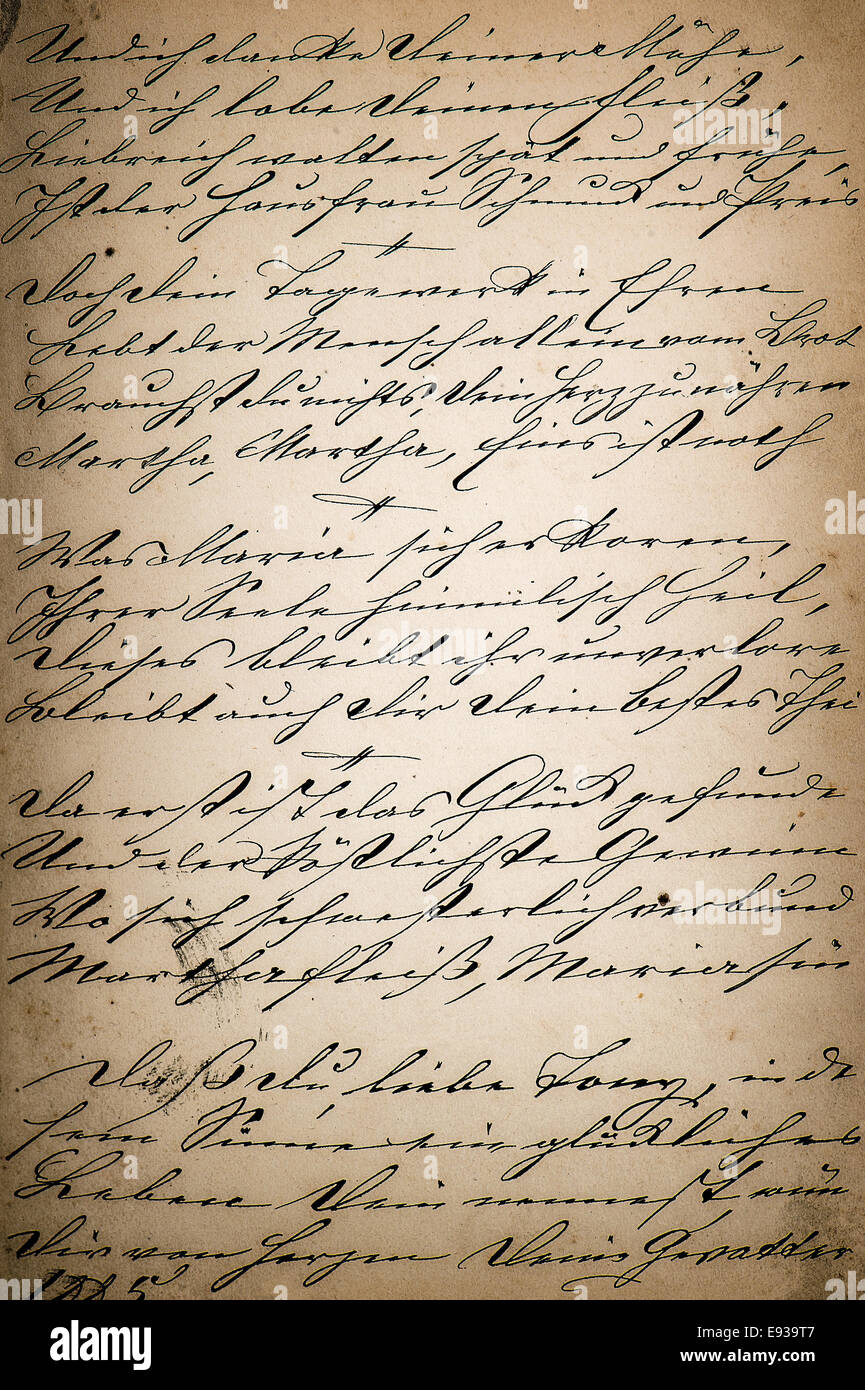 Und ich danke Deiner Mühe,
Und ich lobe Deinen Fleiß,
Liebreich walten spät und frühe,
Ist der Hausfrau Schmuck und Preis
Doch Dein Tagewerk in Ehren
Lebt der Mensch allein vom Brot
Brauchst du nichts, dein Herz zu nähren
Martha, Martha, Eins ist noth
Was Maria sich erkoren,
Ihrer Seele himmlisch Heil,
Dieses bleibt ihr unverlore
Bleibt auch Dir Dein bestes Thei
Da erst ist das Glück gefunde
Und der köstlichste Gewinn
Wo sich schwesterlich verbund
Martha fleiß, Maria sin
Daß Du, liebe Tony, in de
sem Sinne ein glückliches
Leben Dein nennest, wün
Dir von Herzen Deine Gevatter
1885
alamy
Image ID: E939T7
www.alamy.com